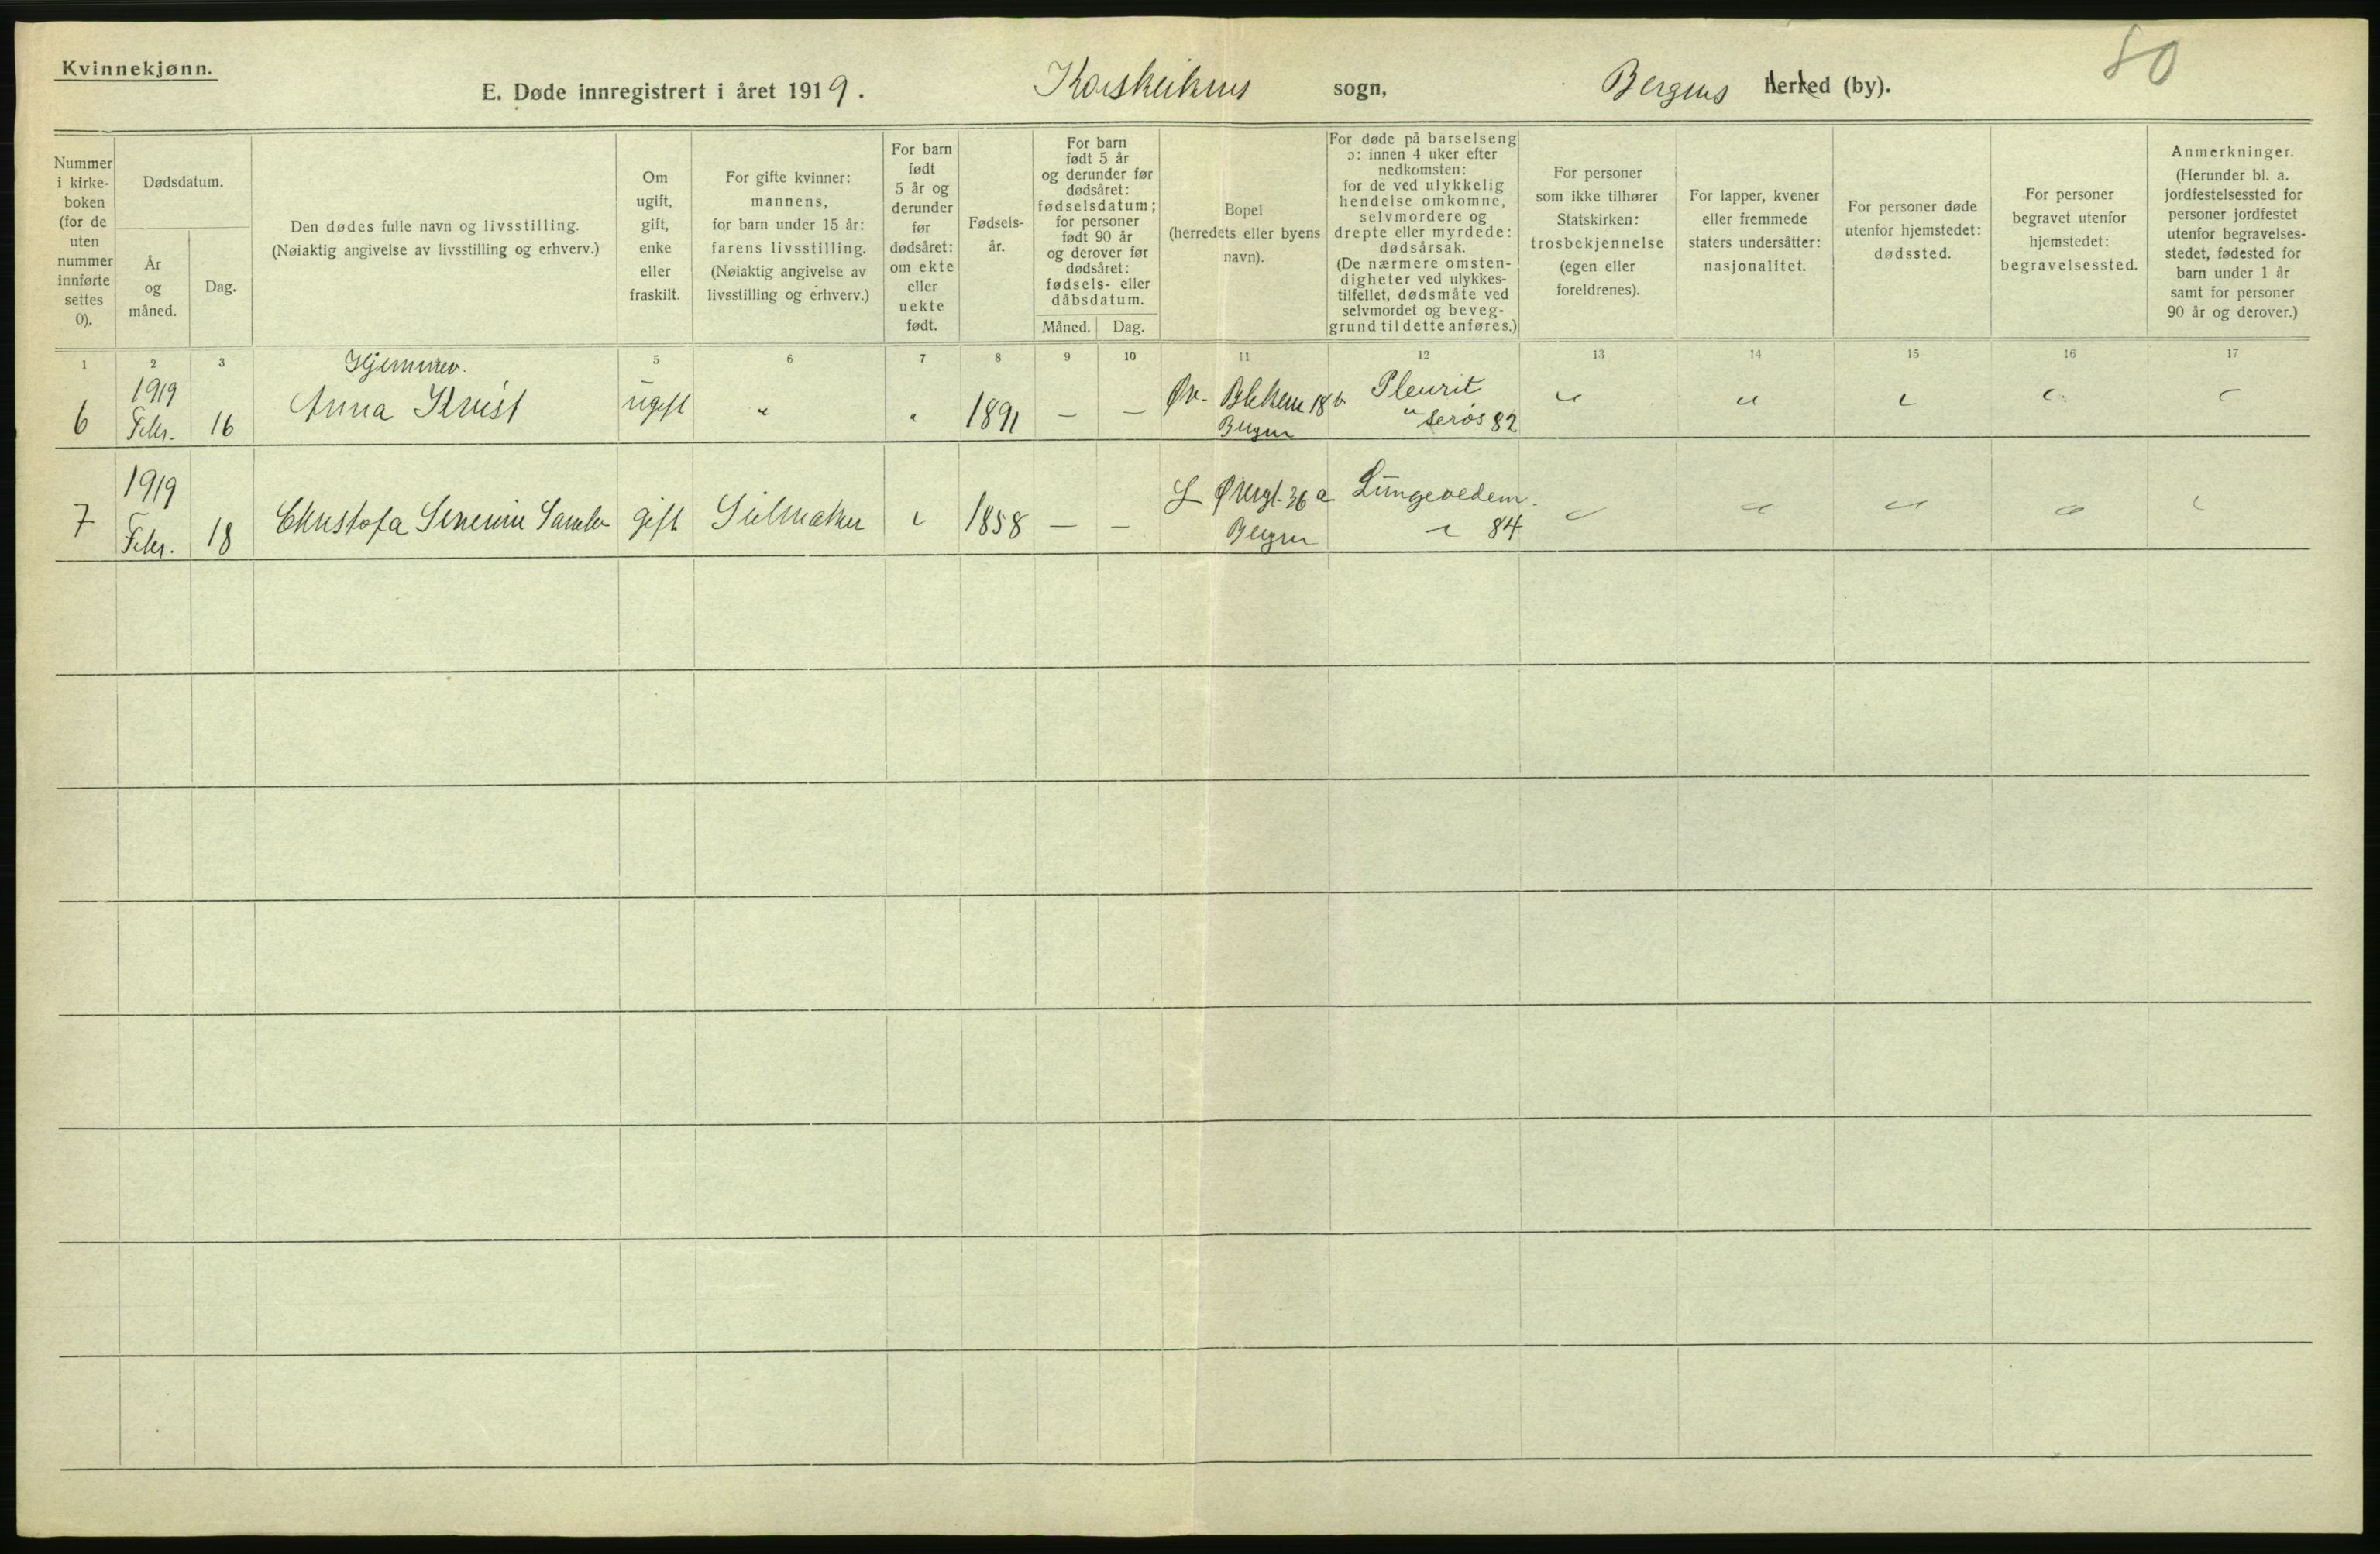 Kvinnekjønn.
80
E. Døde innregistrert i året 1919. Korskirkens sogn, Bergens herred (by).
Nummer i kirkeboken (for de uten nummer innførte settes 0).
Dødsdatum.
År og måned.
Dag.
Den dødes fulle navn og livsstilling.
(Nøiaktig angivelse av livsstilling og erhverv.)
Om ugift, gift, enke eller fraskilt.
For gifte kvinner: mannens, for barn under 15 år: farens livsstilling. (Nøiaktig angivelse av livsstilling og erhverv.)
For barn født 5 år og derunder før dødsåret: om ekte eller uekte født.
Fødselsår.
For barn født 5 år og derunder før dødsåret: fødselsdatum; for personer født 90 år og derover før dødsåret: fødsels- eller dåbsdatum.
Måned.
Dag.
Bopel (herredets eller byens navn).
For døde på barselseng ɔ: innen 4 uker efter nedkomsten: for de ved ulykkelig hendelse omkomne, selvmordere og drepte eller myrdede: dødsårsak. (De nærmere omstendigheter ved ulykkestilfellet, dødsmåte ved selvmordet og beveggrund til dette anføres.)
For personer som ikke tilhører Statskirken: trosbekjennelse (egen eller foreldrenes).
For lapper, kvener eller fremmede staters undersåtter: nasjonalitet.
For personer døde utenfor hjemstedet: dødssted.
For personer begravet utenfor hjemstedet: begravelsessted.
Anmerkninger. (Herunder bl. a. jordfestelsessted for personer jordfestet utenfor begravelsesstedet, fødested for barn under 1 år samt for personer 90 år og derover.)
1 2 3 5 6 7 8 9 10 11 12 13 14 15 16 17
Hjemmev.
6 1919 Febr. 16 Anna Knist ugift " " 1891 — — Øv. Blekevn 18 b Bergen Pleurit " serøs 82 " " " " "
7 1919 Febr. 18 Christofa Severine Sandb gift Seilmaker " 1858 — — L Øvregt. 36 a Bergen Lungeoedem. " 84 " " " " "